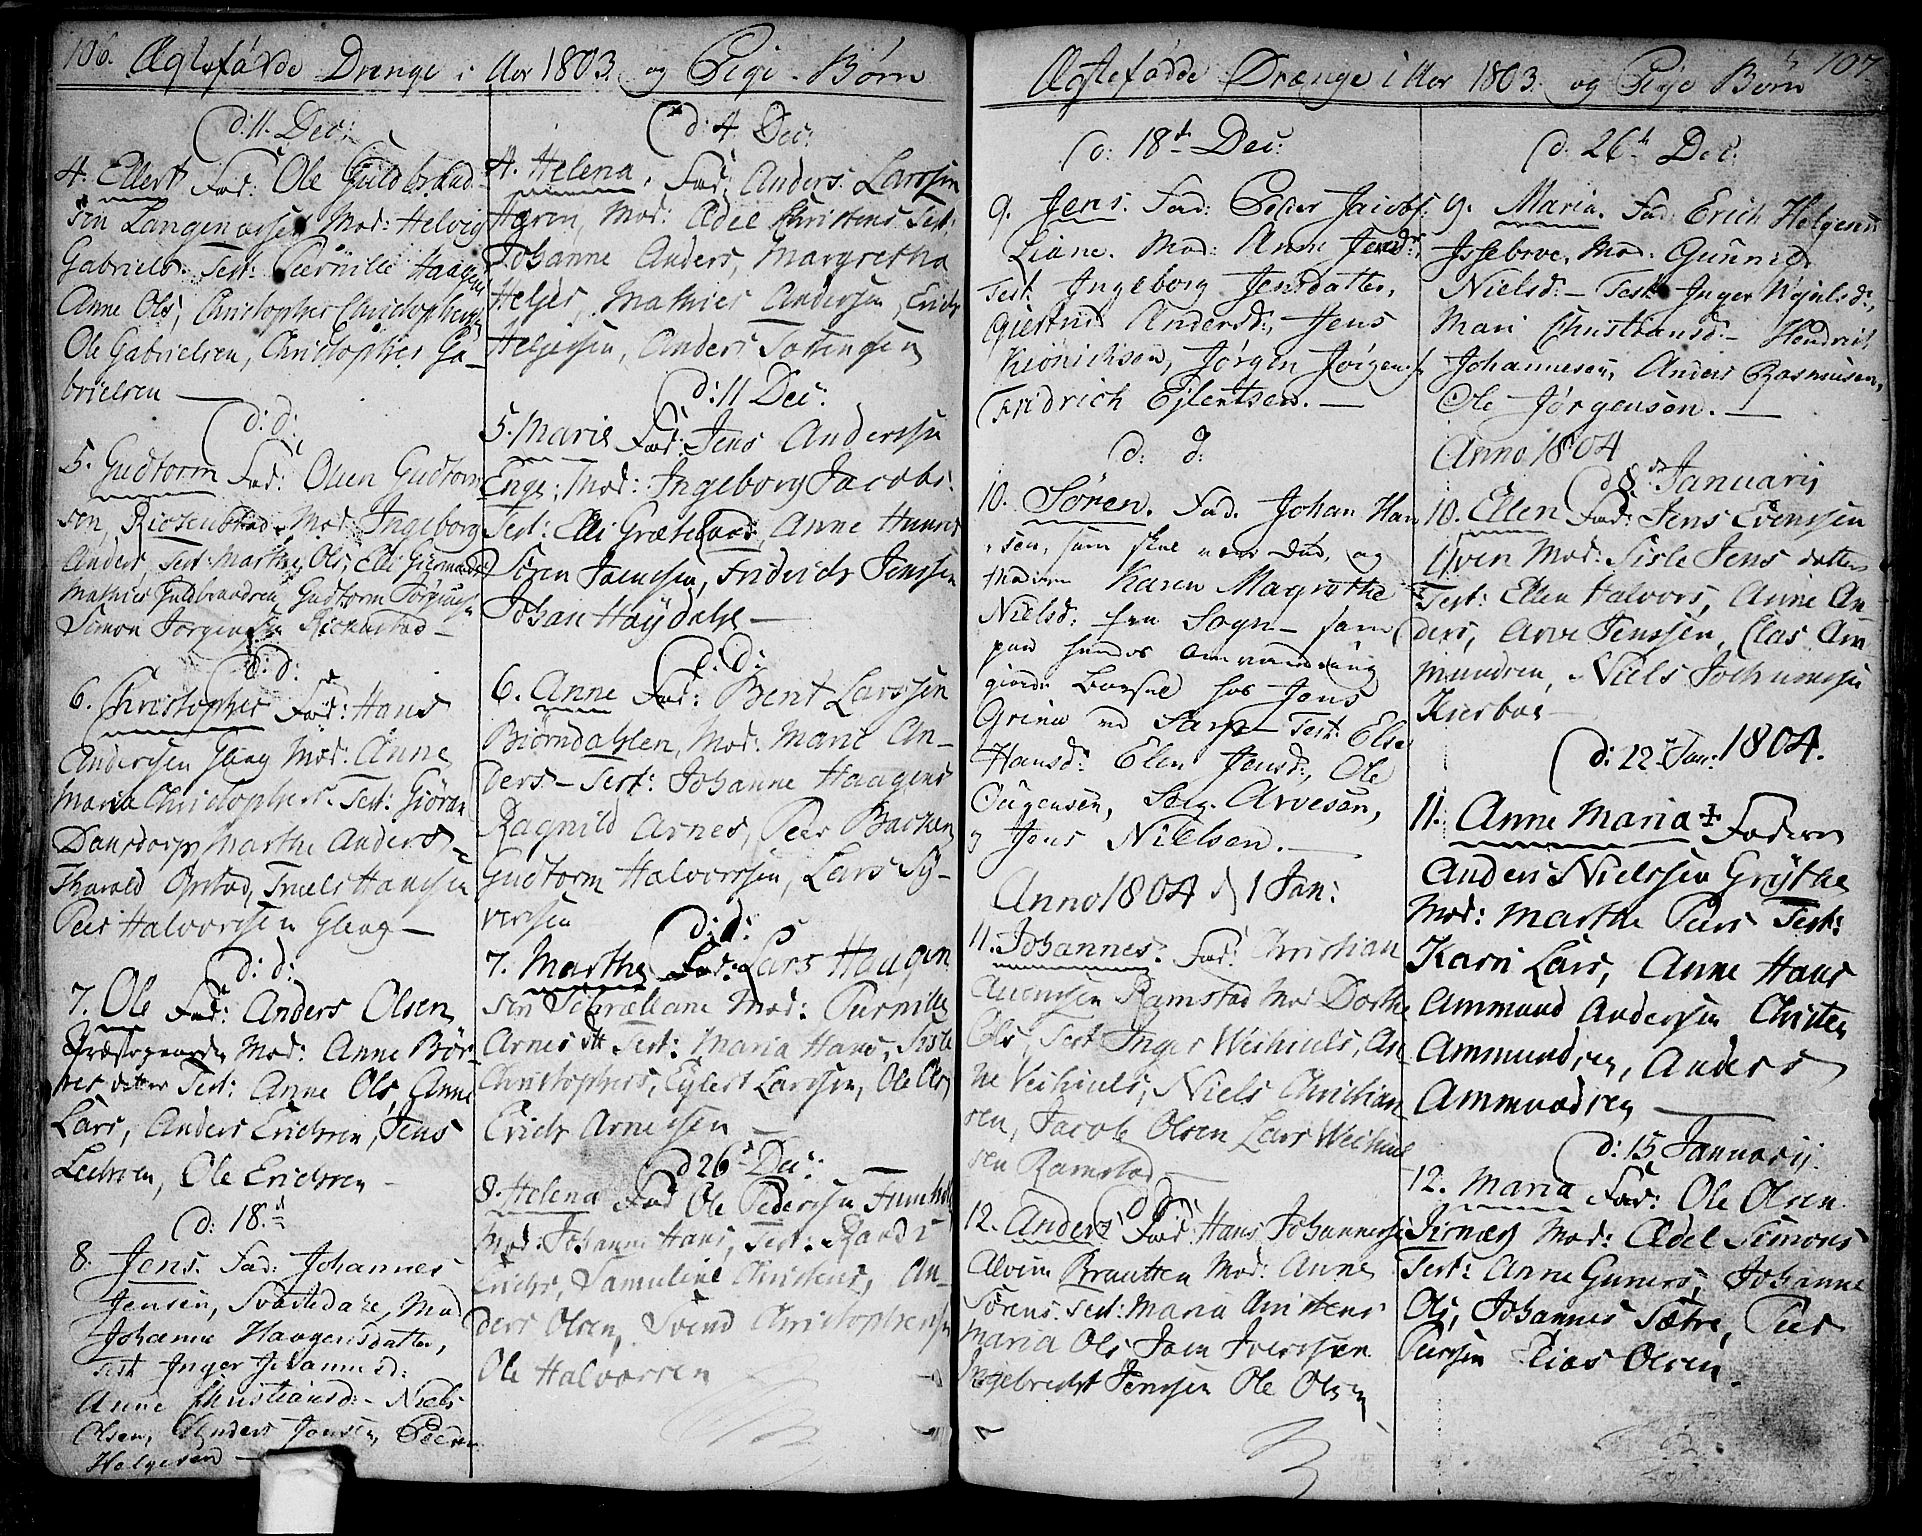 106. Ægtefødde Drenge i Aar 1803. og Pige-Børn
d: 11. Dec:
4. Ellert Fad: Ole Guldbrand-
sen Langen Mod: Helvig
Gabriels: Test: Pernille Haagens
Anne Ols, Christopher Christophersen
Ole Gabrielsen, Christopher Ga-
brielsen —
d: d:
5. Gudtorm Fad: Olsen Gudtorm
sen, Mod: Ingeborg
Anders, Test: Marthe Ols, Elli
Mathies Guldbrandsen Gudtorm Jørgensen
Simon Jørgensen —
d: d:
6. Christopher Fad: Hans
Andersen Gleng Mod: Anne
Maria Christophers. Test: Giøran
Marthe Anders=
Tharald Opstad, Truels Hansen
Peer Halvorsen Gleng —
d: d:
7. Ole Fad: Anders Olsen
Mod: Anne Bør-
res datter Test: Anne Ols, Anne
Lars, Anders Erichsen, Jens
Ole Erichsen -
d: 18.d
8. Jens. Fad: Johannes
Jensen, Mod
Johanne Haagensdatter,
Test Inger Johannesd:
Anne Christiansd: - Niels
Olsen, Anders Jonsen, Peder
Helgesen —
d: 4 Dec:
4. Helena, Fad: Anders Larssen
Mod: Adel Christens Test:
Johanne Anders, Margretha
Heljes, Mathies Andersen, Erich
Heljessen, Anders
d: 11 Dec:
5. Marie Fad: Jens Andersen
Enge; Mod: Ingeborg Jacobs:
Test: Elli Anne
Søren Jensen, Friderich Jenssen
Johan Høydahl —
d: d:
6. Anne Fad: Bent Larssen
Biørndahlen, Mod: Marit An-
ders - Test: Johanne Haagens
Ragnild Arnes, Peer Backen
Gudtorm Halvorssen, Lars Sy-
versen
d: d:
7. Marthe Fad: Lars Haagen
sen Mod: Pernille
Arnes Test: Maria Hans, Sisle
Christophers, Eylert Larssen, Ole Ols
Erich Arnessen —
d 26 Dec:
8. Helena Fad Ole Pedersen
Mod: Johanne Hans, Test: Randi
Erichs, Samuline Christens, An-
ders Olsen, Svend Christophersen
Ole Halvorsen
Ægtefødde Drænge i Aar 1803. og Pige Børn 107.
d: 18d Dec:
9. Jens. Fad: Peder Jacobs:
Liane. Mod: Anne Jensd:
Test: Ingeborg Jensdatter,
Giertrud Andersd:, Jens
Jørgen Jørgens:
Fridrich Ejlertsen. —
d: d:
10. Søren. Fad. Johan Han
sen, som skal være død, og
Moderen Karen Magrethe
Nielsd: fra Sogn - som
paa hendes Omvandring
giorde Barsel hos Jens
Grina ved Sarp - Test: Else
Hansd: Elen Jensd:, Ole
Arvesen,
Jens Nielsen. —
Anno 1804 d 1 Jan:
11. Johannes: Fad: Christian
Ramstad Mod Dorthe
Ols, Test Inger An
ne Niels Christian
sen, Jacob Olsen Lars
sen Ramstad —
d d:
12. Anders Fad: Hans Johannessen
Alvim Mod: Anne
Sørens. Test: Maria Christens
Maria Ols Iversen
Ingebrecht Jenssen Ole Olsen
d. 26d Dec:
9. Maria. Fad: Erich Helgesen
Mod: Gunnild
Nielsd: - Test: Inger
Mari Christiansd: - Hendrich
Johannesen, Anders Rasmusen,
Ole Jørgensen. —
Anno 1804
d 8de Januarij
10. Ellen Fad: Jens Evenssen
Mod: Sisle Jens datter
Test: Ellen Halvors, Anne An
ders, Arve Jenssen, Clas Am
mundsen, Niels Jochumsen
Kierboe —
d: 22 Jan: 1804.
11. Anne Maria Faderen
Anders Nielssen Grythe
Mod: Marthe Peers Test:
Kari Lars, Anne Hans
Ammund Andersen Christen
Ammundsen, Anders
Ammundsen —
d: 15 Januarij.
12. Maria Fad: Ole Olsen
Mod: Ædel Simons
Test: Anne Guners, Johanne
Ols, Johannes Sætre, Peer
Peersen Elias Olsen.